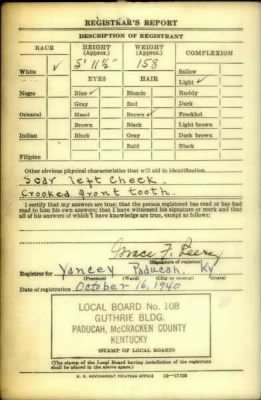 REGISTRAR'S REPORT
DESCRIPTION OF REGISTRANT
RACE HEIGHT (Approx.) WEIGHT (Approx.) COMPLEXION
White ✓ 5' 11½" 158 Sallow
EYES HAIR Light ✓
Negro Blue ✓ Blonde Ruddy
Gray Red Dark
Oriental Hazel Brown ✓ Freckled
Brown Black Light brown
Indian Black Gray Dark brown
Bald Black
Filipino
Other obvious physical characteristics that will aid in identification
Scar left cheek
Crooked front tooth.
I certify that my answers are true; that the person registered has read or has had
read to him his own answers; that I have witnessed his signature or mark and that
all of his answers of which I have knowledge are true, except as follows:
Grace F.
(Signature of registrar)
Registrar for Yancey Paducah, Ky
(Precinct) (Ward) (City or county) (State)
Date of registration October 16, 1940
LOCAL BOARD No. 108
GUTHRIE BLDG.
PADUCAH, McCRACKEN COUNTY
KENTUCKY
(STAMP OF LOCAL BOARD)
(The stamp of the Local Board having jurisdiction of the registrant
shall be placed in the above space.)
U. S. GOVERNMENT PRINTING OFFICE